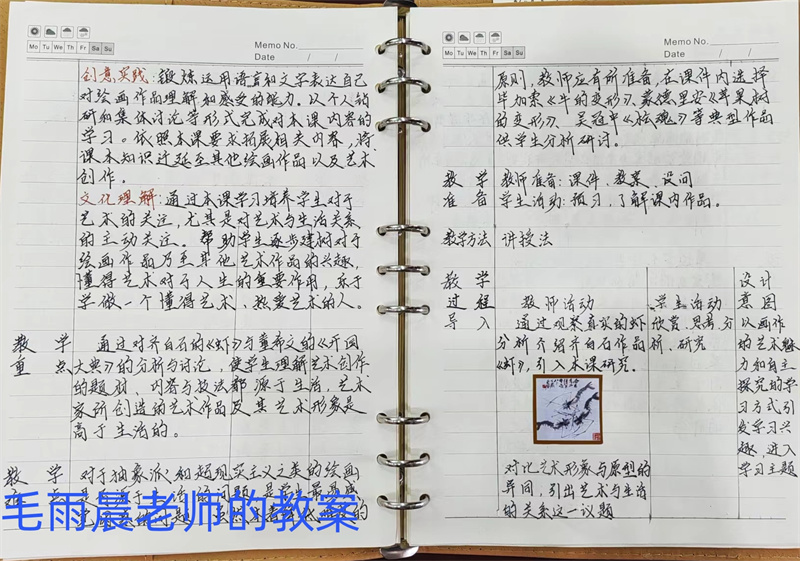 Memo No.
Mo Tu We Th Fr Sa Su
Date / /
创意实践:锻炼运用语言和文字表达自己
对绘画作品理解和感受的能力。以个人钻
研和集体讨论等形式完成对本课内容的
学习。依照本课要求拓展相关内容,将
课本知识迁延至其他绘画作品以及艺术
创作。
文化理解:通过本课学习培养学生对于
艺术的关注,尤其是对艺术与生活关系
的主动关注。帮助学生逐步建树对于
绘画作品乃至其他艺术作品的兴趣,
懂得艺术对于人生的重要作用,乐于
学做一个懂得艺术、热爱艺术的人。
教学重点
通过对齐白石的《虾》与董希文的《开国
大典》的分析与讨论,使学生理解艺术创作
的题材、内容与技法都源于生活,艺术
家所创造的艺术作品及其艺术形象是
高于生活的。
教学
对于抽象派和超现实主义之类的绘画
毛雨晨老师的教案
Memo No.
Mo Tu We Th Fr Sa Su
Date / /
原则,教师应有所准备,在课件内选择
毕加索《牛的变形》、蒙德里安《苹果树
的变形》、吴冠中《松魂》等典型作品
供学生分析研讨。
教学准备
教师准备:课件、教案、设问
学生活动:预习,了解课内作品。
教学方法 讲授法
教学过程
教师活动
学生活动
设计意图
导入
通过观察真实的虾
分析介绍齐白石作品
《虾》,引入本课研究。
欣赏、思考、分
析、研究
以画作
的艺术魅
力和自主
探究的学
习方式引
发学习兴
趣,进入
学习主题
对比艺术形象与原型的
异同,引出艺术与生活
的关系这一议题